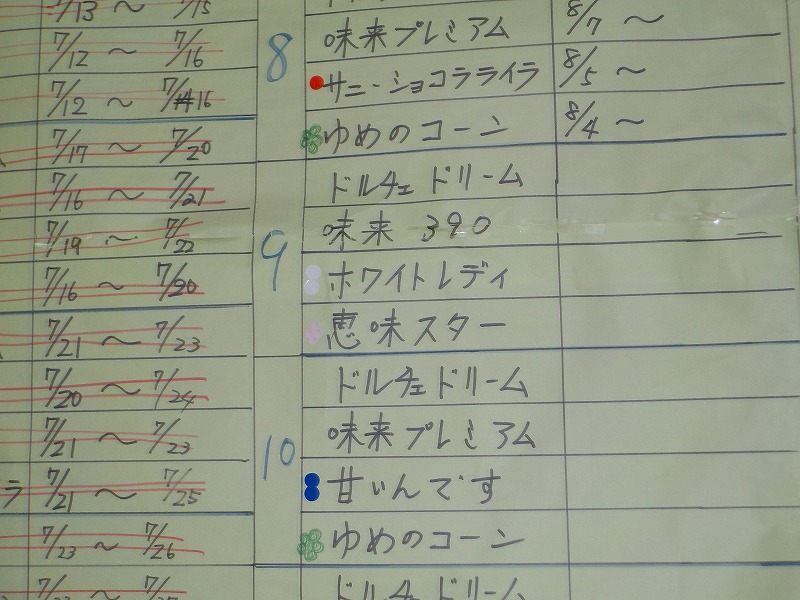 7/13 ～ 7/15
7/12 ～ 7/16
7/12 ～ 7/16
7/17 ～ 7/20
7/16 ～ 7/21
7/19 ～ 7/22
7/16 ～ 7/20
7/21 ～ 7/23
7/20 ～ 7/24
7/21 ～ 7/23
ラ 7/21 ～ 7/25
7/23 ～ 7/26
8
味来プレミアム 8/7 ～
サニーショコラライラ 8/5 ～
ゆめのコーン 8/4 ～
9
ドルチェドリーム
味来 390
ホワイトレディ
恵味スター
10
ドルチェドリーム
味来プレミアム
甘いんです
ゆめのコーン
ドルチェドリーム